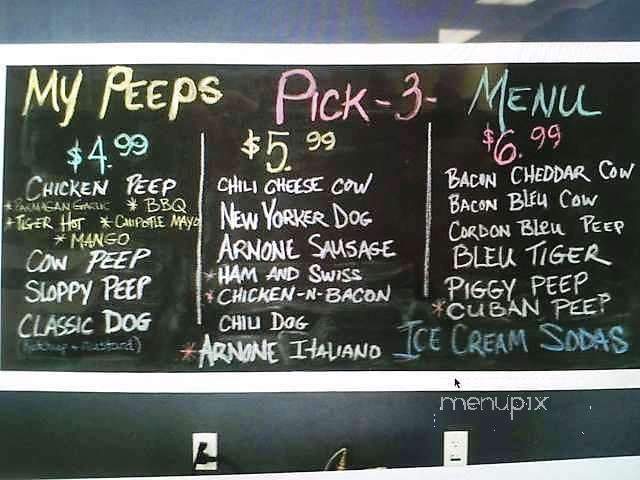 My Peeps Pick-3- Menu
$4.99
Chicken Peep
*Parmasan Garlic * BBQ
*Tiger Hot * Chipotle Mayo
*Mango
Cow Peep
Sloppy Peep
Classic Dog
(Ketchup + Mustard)
$5.99
Chili Cheese Cow
New Yorker Dog
Arnone Sausage
*Ham and Swiss
*Chicken-n-Bacon
Chili Dog
*Arnone Italiano
$6.99
Bacon Cheddar Cow
Bacon Bleu Cow
Cordon Bleu Peep
Bleu Tiger
Piggy Peep
*Cuban Peep
Ice Cream Sodas
menupix